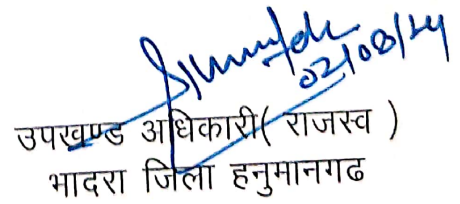 02/08/24
उपखण्ड अधिकारी( राजस्व )
भादरा जिला हनुमानगढ